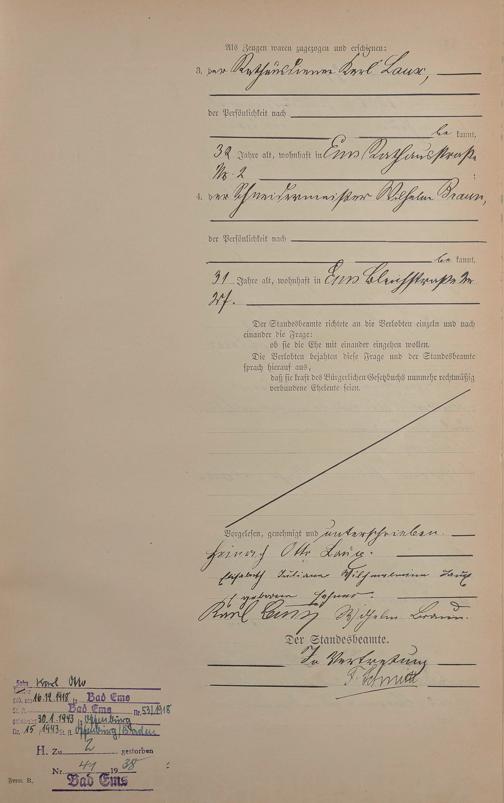 Als Zeugen waren zugezogen und erschienen:
3. der Rathausdiener Karl Laux,
der Persönlichkeit nach
be kannt,
32 Jahre alt, wohnhaft in Ems, Rathausstraße
Nr. 2
4. der Schneidermeister Wilhelm Braun,
der Persönlichkeit nach
be kannt,
31 Jahre alt, wohnhaft in Ems Bleichstraße Nr
Der Standesbeamte richtete an die Verlobten einzeln und nach
einander die Frage:
ob sie die Ehe mit einander eingehen wollen.
Die Verlobten bejahten diese Frage und der Standesbeamte
sprach hierauf aus,
daß sie kraft des Bürgerlichen Gesetzbuchs nunmehr rechtmäßig
verbundene Eheleute seien.
Vorgelesen, genehmigt und unterschrieben.
Heinrich Otto
Elisabeth Juliane Wilhelmine
geborene
Karl Wilhelm Braun.
Der Standesbeamte.
In Vertretung
Karl Otto
16.12.1918 Bad Ems
Bad Ems Nr. 53/1918
30.1.1943 Offenburg
Nr. 15/1943 Offenburg/Baden
H. Zu 2 gestorben
Nr. 41 1938
Bad Ems
Form. B.